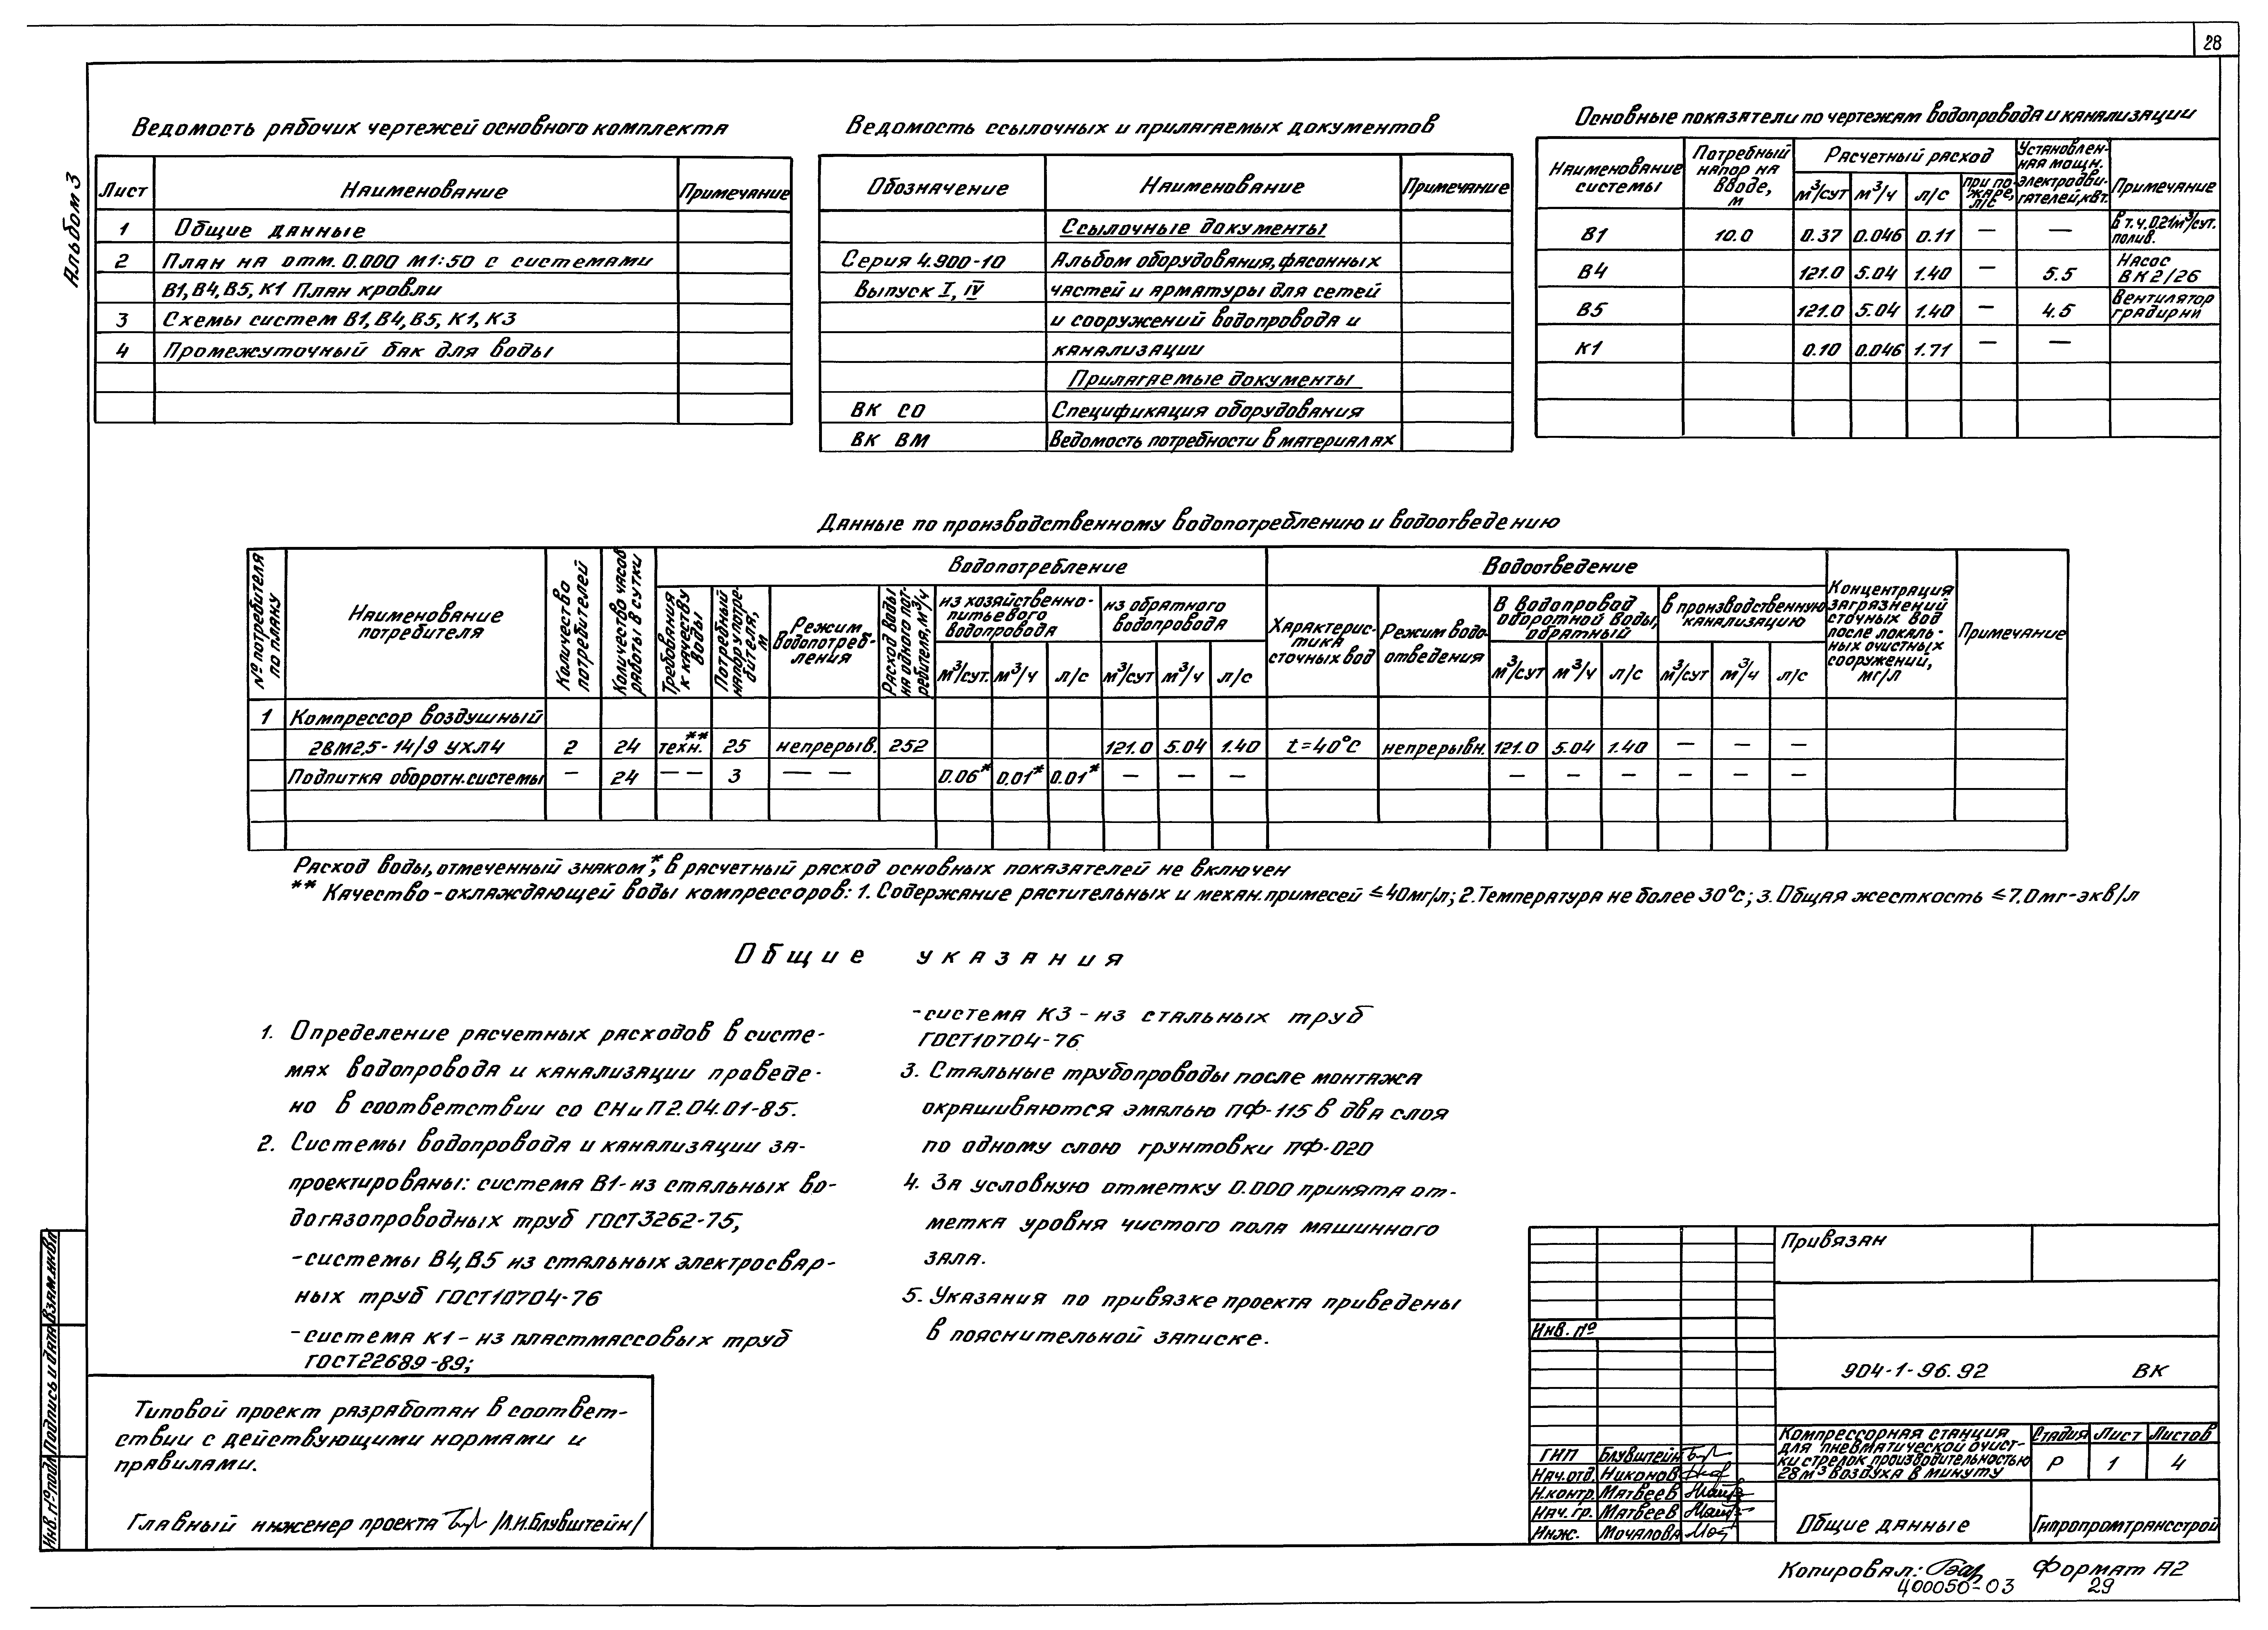 28
Альбом 3
Ведомость рабочих чертежей основного комплекта
Лист Наименование Примечание
1 Общие данные
2 План на отм. 0.000 М1:50 с системами
В1, В4, В5, К1 План кровли
3 Схемы систем В1, В4, В5, К1, К3
4 Промежуточный бак для воды
Ведомость ссылочных и прилагаемых документов
Обозначение Наименование Примечание
Ссылочные документы
Серия 4.900-10 Альбом оборудования, фасонных
Выпуск I, IV частей и арматуры для сетей
и сооружений водопровода и
канализации
Прилагаемые документы
ВК СО Спецификация оборудования
ВК ВМ Ведомость потребности в материалах
Основные показатели по чертежам водопровода и канализации
Наименование системы Потребный напор на вводе, м Расчетный расход Установлен-ная мощн. электродви-гателей, кВт. Примечание
м³/сут м³/ч л/с при по-жаре, л/с
В1 10.0 0.37 0.046 0.11 — — в т.ч. 0.21м³/сут. полив.
В4 121.0 5.04 1.40 — 5.5 Насос ВК2/26
В5 121.0 5.04 1.40 — 4.5 Вентилятор градирни
К1 0.10 0.046 1.71 — —
Данные по производственному водопотреблению и водоотведению
№ потребителя по плану Наименование потребителя Количество потребителей Количество часов работы в сутки Водопотребление Водоотведение Концентрация загрязнений сточных вод после локаль-ных очистных сооружений, мг/л Примечание
Требования к качеству воды Потребный напор у потре-бителя, м Режим водопотреб-ления Расход воды на одного пот-ребителя, м³/ч из хозяйственно-питьевого водопровода из обратного водопровода Характерис-тика сточных вод Режим водо-отведения В водопровод оборотной воды, обратный в производственную канализацию
м³/сут. м³/ч л/с м³/сут м³/ч л/с м³/сут м³/ч л/с м³/сут м³/ч л/с
1 Компрессор воздушный
2ВМ2.5-14/9 УХЛ4 2 24 техн.** 25 непрерыв. 252 121.0 5.04 1.40 t=40°С непрерывн. 121.0 5.04 1.40 — — —
Подпитка оборотн. системы — 24 — — 3 — — 0.06* 0.01* 0.01* — — — — — — — — —
Расход воды, отмеченный знаком*, в расчетный расход основных показателей не включен
** Качество-охлаждающей воды компрессоров: 1. Содержание растительных и механ. примесей ≤40мг/л; 2. Температура не более 30°С; 3. Общая жесткость ≤7.0мг-экв/л
Общие указания
1. Определение расчетных расходов в систе-
мах водопровода и канализации проведе-
но в соответствии со СНиП2.04.01-85.
2. Системы водопровода и канализации за-
проектированы: система В1- из стальных во-
догазопроводных труб ГОСТ3262-75,
-системы В4, В5 из стальных электросвар-
ных труб ГОСТ10704-76
-система К1 - из пластмассовых труб
ГОСТ22689-89;
-система К3 - из стальных труб
ГОСТ10704-76
3. Стальные трубопроводы после монтажа
окрашиваются эмалью ПФ-115 в два слоя
по одному слою грунтовки ПФ-020
4. За условную отметку 0.000 принята от-
метка уровня чистого пола машинного
зала.
5. Указания по привязке проекта приведены
в пояснительной записке.
Типовой проект разработан в соответ-
ствии с действующими нормами и
правилами.
Главный инженер проекта /Л.И.Блувштейн/
Инв.№подл Подпись и дата Взам.инв№
Привязан
Инв. №
904-1-96.92 ВК
Компрессорная станция
для пневматической очист-
ки стрелок производительностью
28м³ воздуха в минуту
Стадия Лист Листов
Р 1 4
ГИП Блувштейн
Нач.отд. Никонов
Н.контр. Матвеев
Нач. гр. Матвеев
Инж. Мочалова
Общие данные
Гипропромтрансстрой
Копировал: Формат А2
400050-03 29